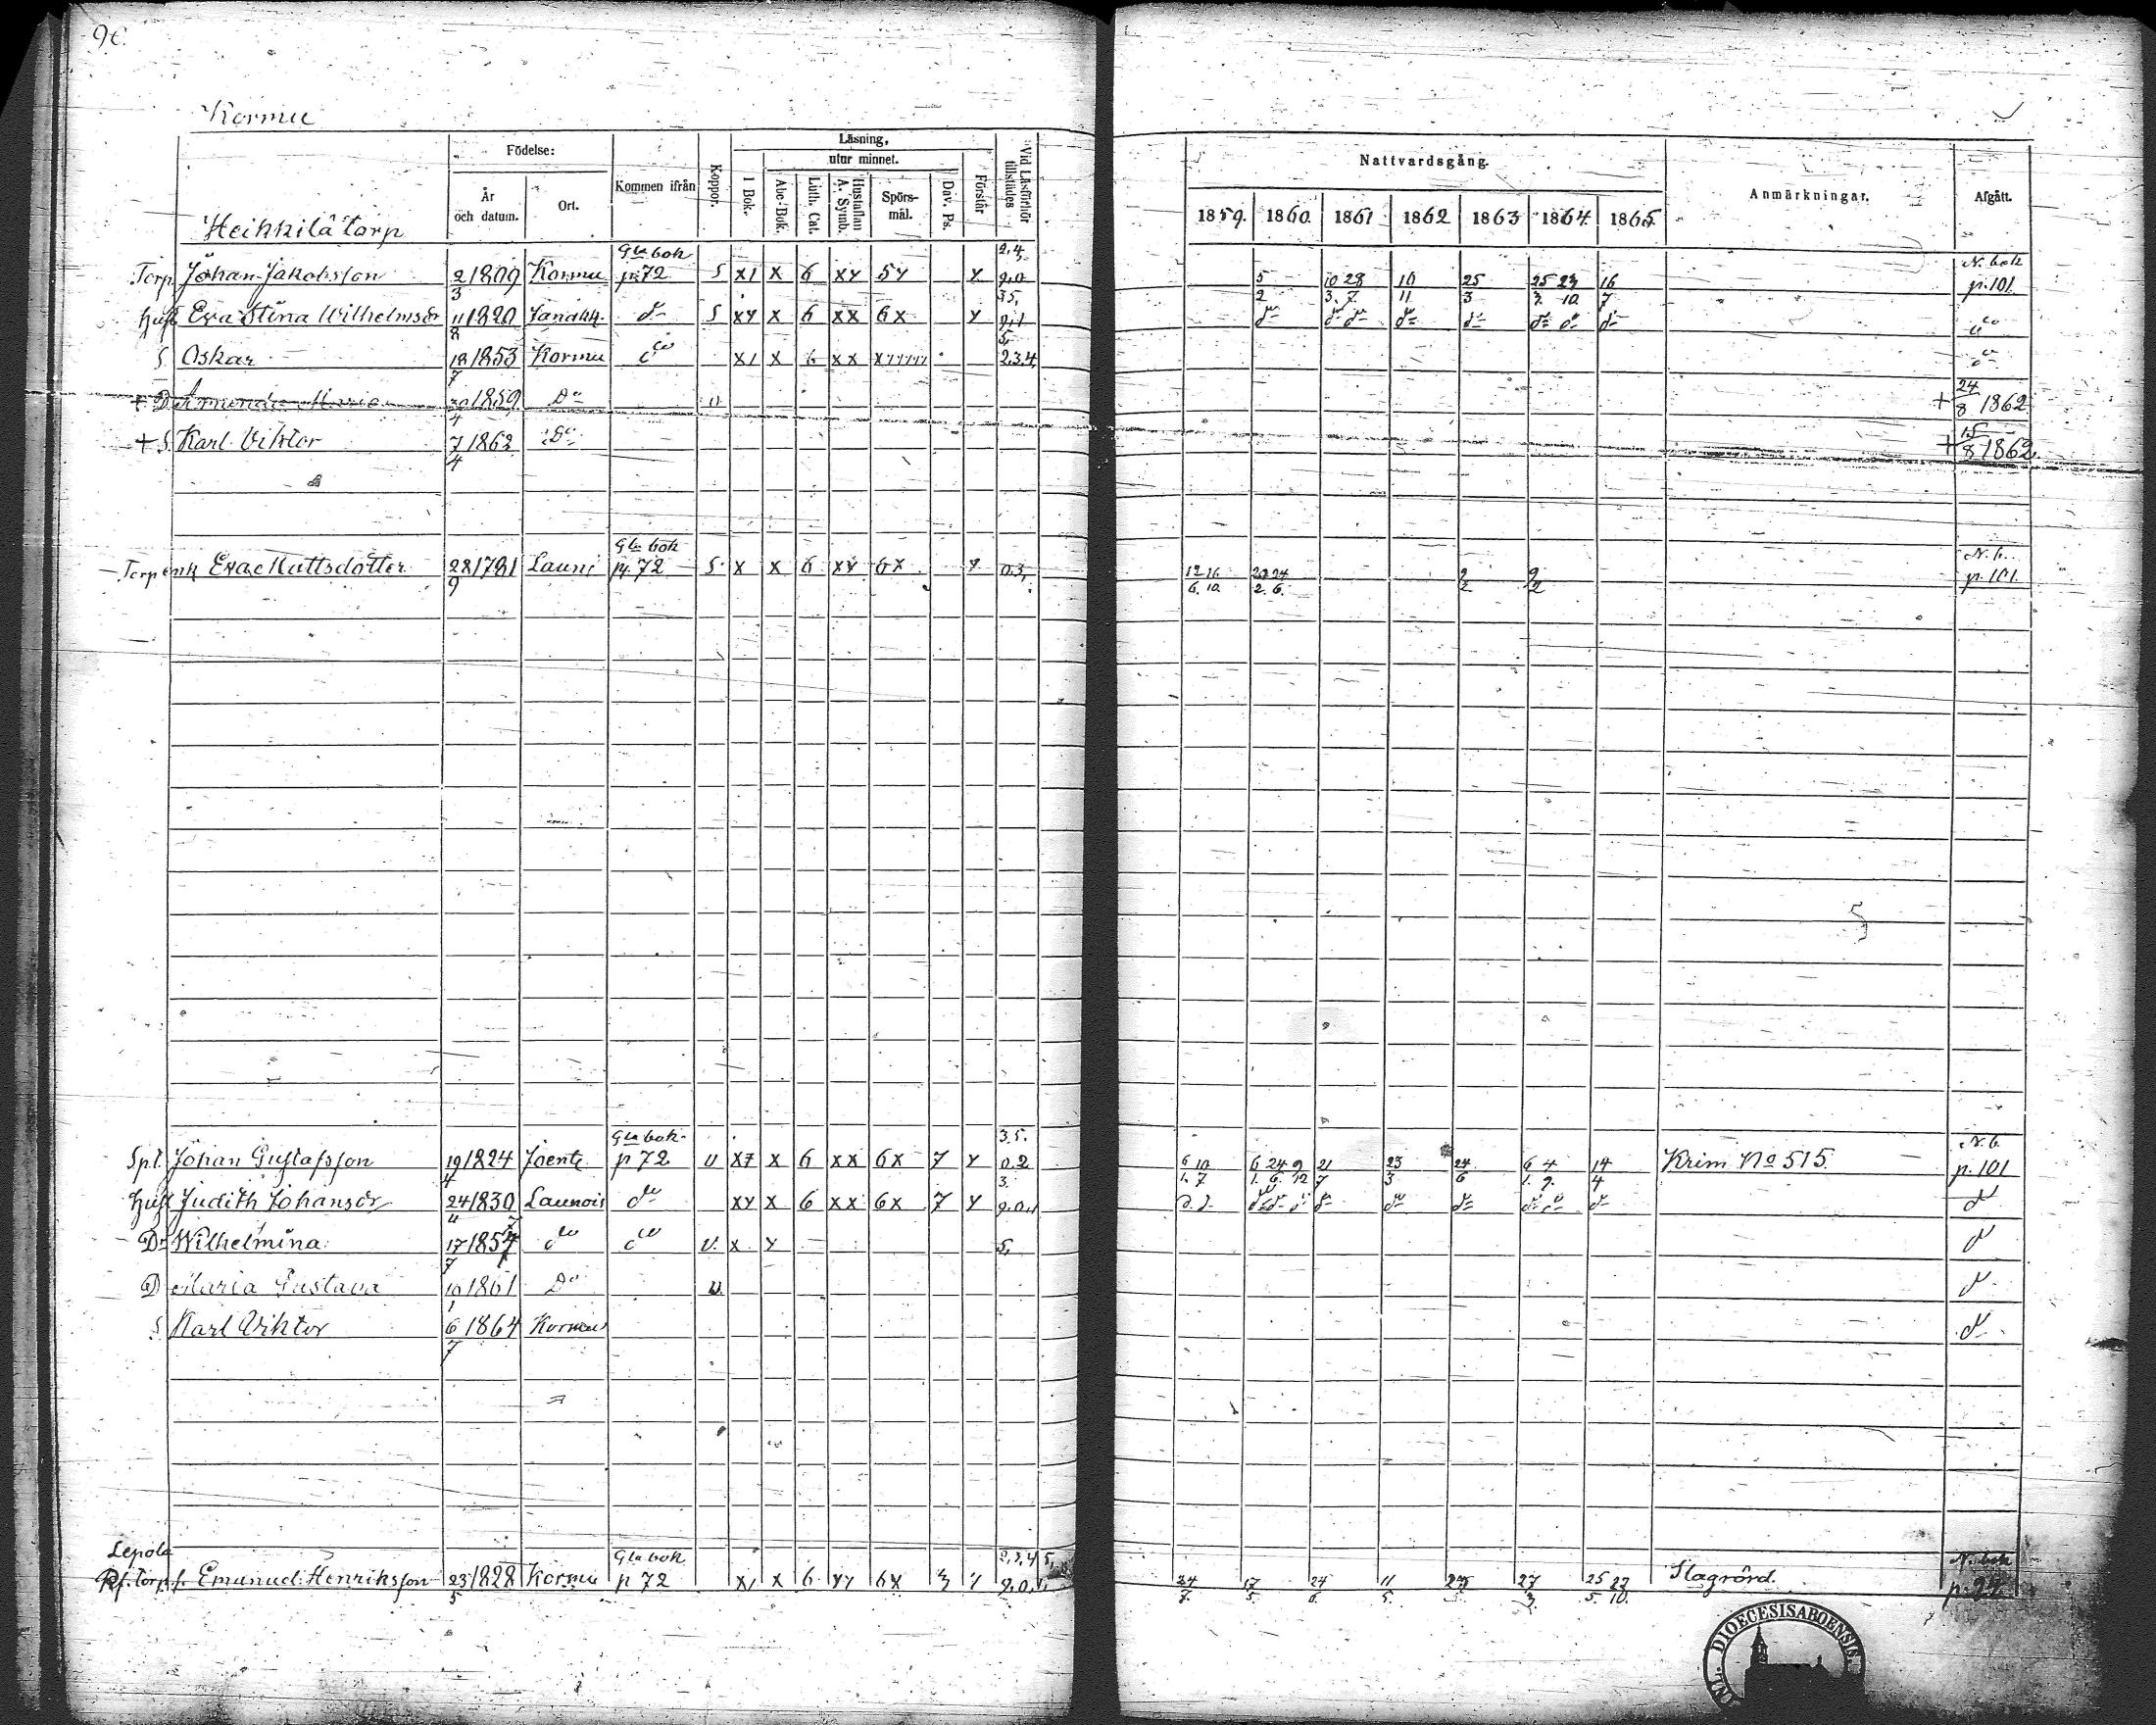 Kormu
Födelse: Läsning, utur minnet.
År och datum. Ort. Kommen ifrån Koppor. I Bok. Abc-Bok. Luth. Cat. Hustaflan A. Symb. Spörs-mål. Dav. Ps. Förstår Vid Läsförhör tillstädes
Nattvardsgång. Anmärkningar. Afgått.
1859. 1860 1861 1862 1863 1864 1865
Heikkilä torp
Gla bok 2,4, N. bok
Torp. Johan Jakobsson 2/3 1809 Kormu p. 72 S X1 X 6 XY 5Y Y 5/2 10/3. 28/7 10/11 25/3 25/3. 23/10 16/7 p. 101
Hust Eva Stina Wilhelmsdr 11/8 1820 Janakk. do S XY X 6 XX 6X Y do do do do do do do do do
S. Oskar 18/7 1853 Kormu do X1 X 6 XX 2.3.4, do
+ D Maria 30/4 1859 Do + 24/8 1862
+ S. Karl Viktor 7/4 1862 Do + 15/8 1862
Gla bok N. b.
Torp enk Eva Mattsdotter 28/9 1781 Launi p. 72 S. X X 6 XY 6X Y 0.3, 12/6. 16/10 24/6. 9/2 9/2 p. 101.
Gla bok 3.5. N. b.
Spt. Johan Gustafsson 19/4 1824 Joente p 72 v X7 X 6 XX 6X 7 Y 0.2 6/1. 10/7 6/1. 24/6. 9/12 21/7 23/3 24/6 6/1. 4/9. 14/4 Krim No 515. p. 101
Hust Judith Johansdr 24/4 1830 Launois do XY X 6 XX 6X 7 Y do do do do do do do do
Dr Wilhelmina 17/7 1857 do do v. X Y 5, do
D Maria Gustava 10/1 1861 Do v. do
S Karl Viktor 6/7 1864 Kormu do
Lepola Gla bok N. bok
Emanuel Henriksson 23/5 1828 Kormu p 72 X1 X 6 YY 6X 3 Y 24/7. 17/5 11/5. 27/3. 25/5. 22/10. Slagrörd.
DIOECESIS ABOENSIS